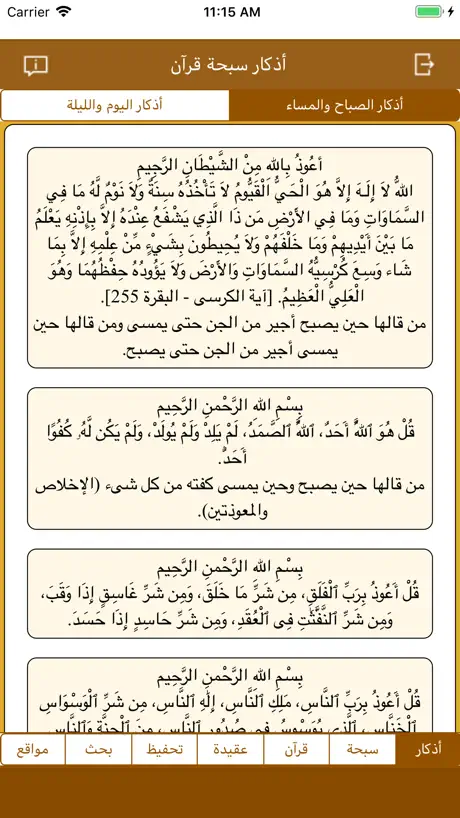 Carrier 11:15 AM
أذكار سبحة قرآن
أذكار الصباح والمساء
أذكار اليوم والليلة
أعُوذُ بِاللهِ مِنْ الشَّيْطَانِ الرَّجِيمِ
اللّهُ لاَ إِلَهَ إِلاَّ هُوَ الْحَيُّ الْقَيُّومُ لاَ تَأْخُذُهُ سِنَةٌ وَلاَ نَوْمٌ لَّهُ مَا فِي
السَّمَاوَاتِ وَمَا فِي الأَرْضِ مَن ذَا الَّذِي يَشْفَعُ عِنْدَهُ إِلاَّ بِإِذْنِهِ يَعْلَمُ
مَا بَيْنَ أَيْدِيهِمْ وَمَا خَلْفَهُمْ وَلاَ يُحِيطُونَ بِشَيْءٍ مِّنْ عِلْمِهِ إِلاَّ بِمَا
شَاء وَسِعَ كُرْسِيُّهُ السَّمَاوَاتِ وَالأَرْضَ وَلاَ يَؤُودُهُ حِفْظُهُمَا وَهُوَ
الْعَلِيُّ الْعَظِيمُ. [آية الكرسى - البقرة 255].
من قالها حين يصبح أجير من الجن حتى يمسى ومن قالها حين
يمسى أجير من الجن حتى يصبح.
بِسْمِ اللهِ الرَّحْمنِ الرَّحِيم
قُلْ هُوَ ٱللَّهُ أَحَدٌ، ٱللَّهُ ٱلصَّمَدُ، لَمْ يَلِدْ وَلَمْ يُولَدْ، وَلَمْ يَكُن لَّهُۥ كُفُوًا
أَحَدٌۢ.
من قالها حين يصبح وحين يمسى كفته من كل شىء (الإخلاص
والمعوذتين).
بِسْمِ اللهِ الرَّحْمنِ الرَّحِيم
قُلْ أَعُوذُ بِرَبِّ ٱلْفَلَقِ، مِن شَرِّ مَا خَلَقَ، وَمِن شَرِّ غَاسِقٍ إِذَا وَقَبَ،
وَمِن شَرِّ ٱلنَّفَّٰثَٰتِ فِى ٱلْعُقَدِ، وَمِن شَرِّ حَاسِدٍ إِذَا حَسَدَ.
بِسْمِ اللهِ الرَّحْمنِ الرَّحِيم
قُلْ أَعُوذُ بِرَبِّ ٱلنَّاسِ، مَلِكِ ٱلنَّاسِ، إِلَٰهِ ٱلنَّاسِ، مِن شَرِّ ٱلْوَسْوَاسِ
ٱلْخَنَّاسِ، ٱلَّذِى يُوَسْوِسُ فِى صُدُورِ ٱلنَّاسِ، مِنَ ٱلْجِنَّةِ وَٱلنَّاسِ
أذكار
سبحة
قرآن
عقيدة
تحفيظ
بحث
مواقع